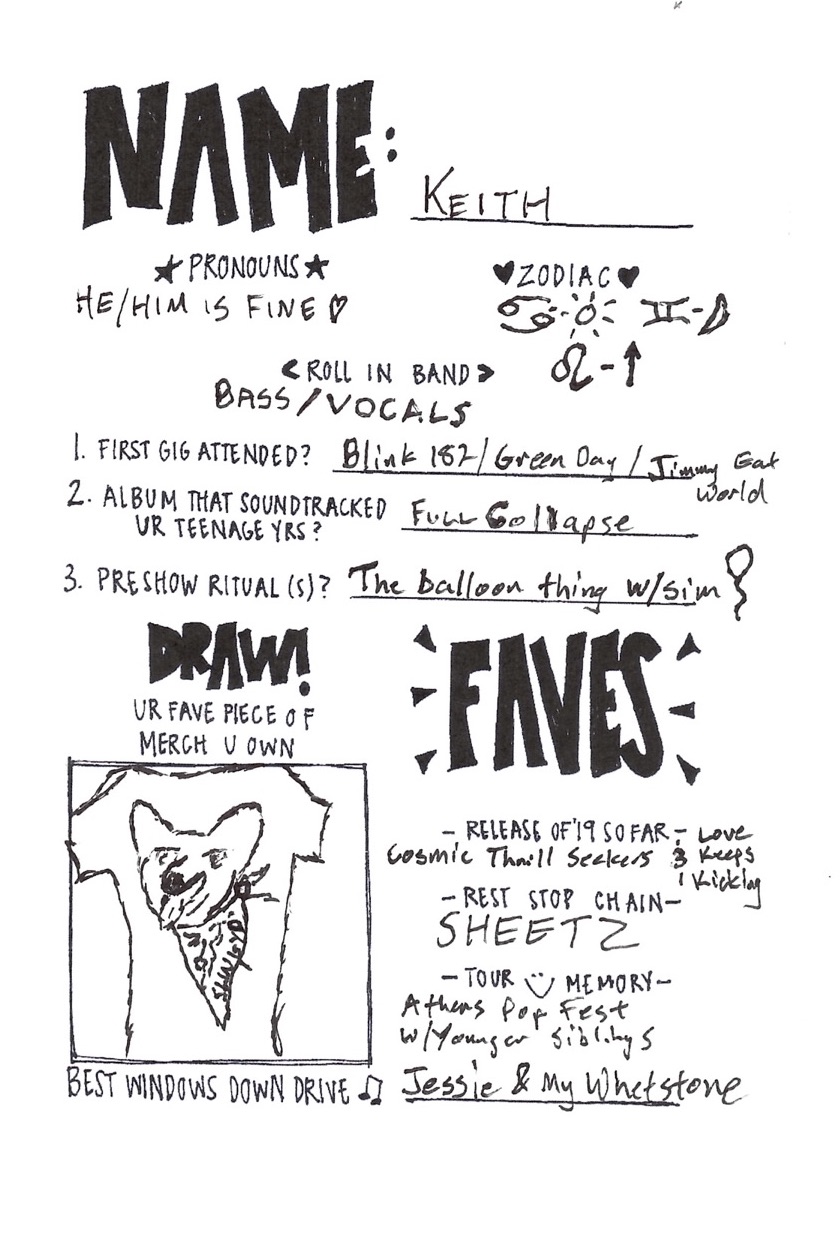 NAME: KEITH
★ PRONOUNS ★
HE/HIM IS FINE ♡
♥ZODIAC♥
♋ ☀ ♊-☽
♌-↑
<ROLL IN BAND>
BASS/VOCALS
1. FIRST GIG ATTENDED? Blink 182/Green Day/Jimmy Eat
World
2. ALBUM THAT SOUNDTRACKED
UR TEENAGE YRS? FULL Collapse
3. PRESHOW RITUAL(S)? The balloon thing w/sim
DRAW!
UR FAVE PIECE OF
MERCH U OWN
FAVES
- RELEASE OF '19 SO FAR - Love
Cosmic Thrill Seekers & Keeps
Kicking
- REST STOP CHAIN -
SHEETZ
- TOUR MEMORY -
Athens Pop Fest
w/Younger Siblings
BEST WINDOWS DOWN DRIVE ♫ Jessie & My Whetstone